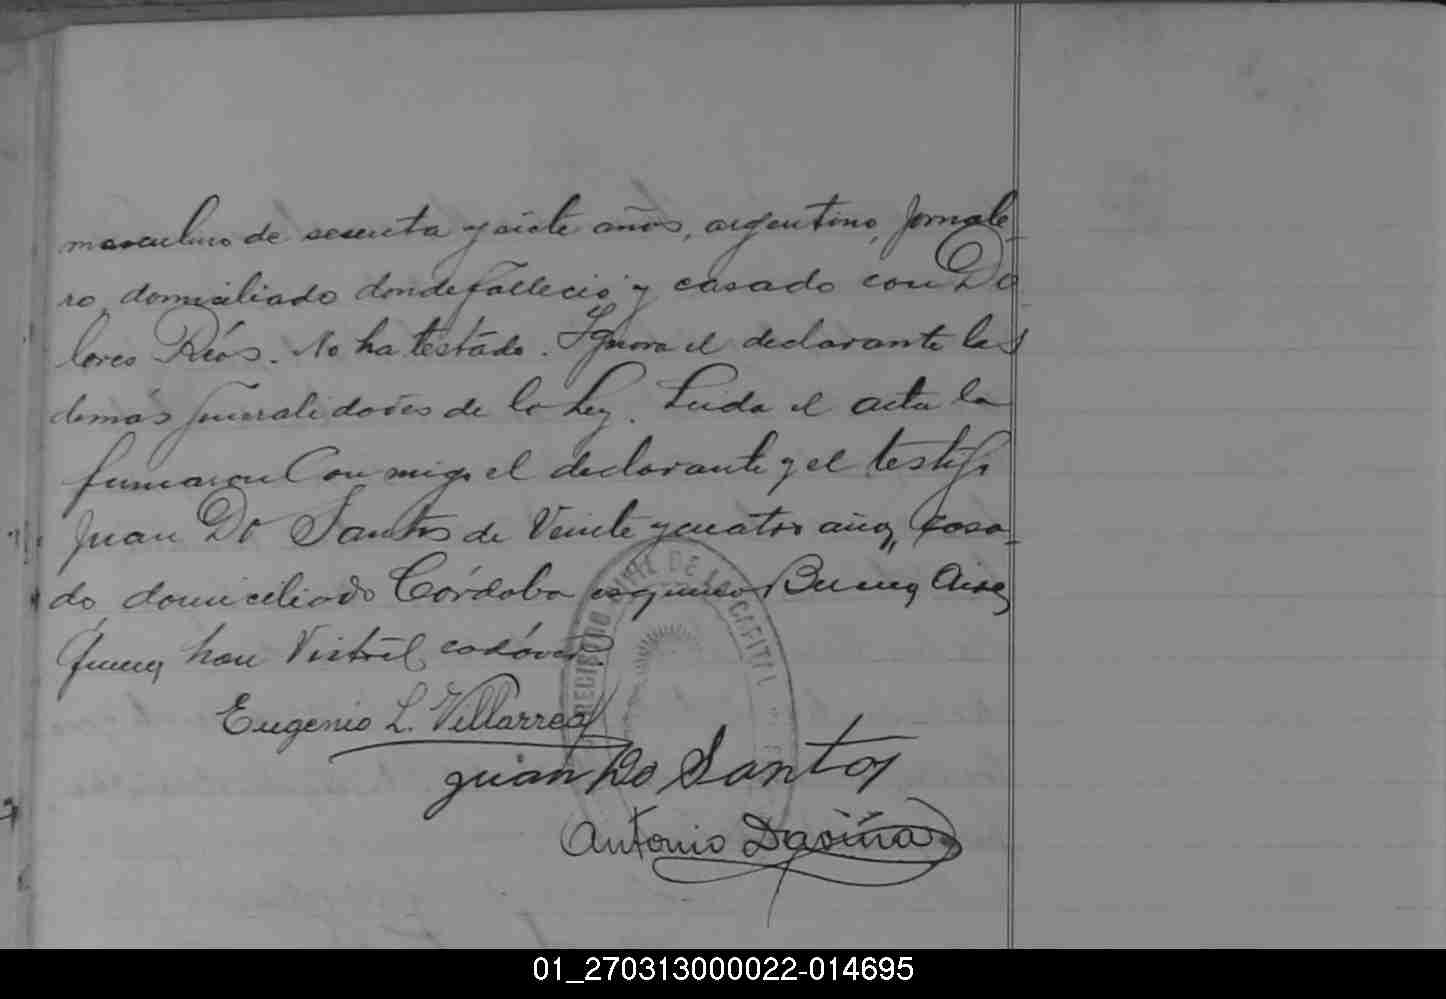 masculino de sesenta y siete años, argentino, jornale-
ro, domiciliado donde falleció y casado con Do
lores Ríos. No ha testado. Ignora el declarante las
demás generalidades de la Ley. Leida el acta la
firmaron conmigo el declarante y el testigo
Juan Do Santos de Veinte y cuatro años, casa-
do, domiciliado Córdoba esquina Buenos Aires
quienes han visto el cadáver
REGISTRO CIVIL DE LA CAPITAL
Eugenio L. Villarreal
Juan Do Santos
Antonio Daviña
01_270313000022-014695